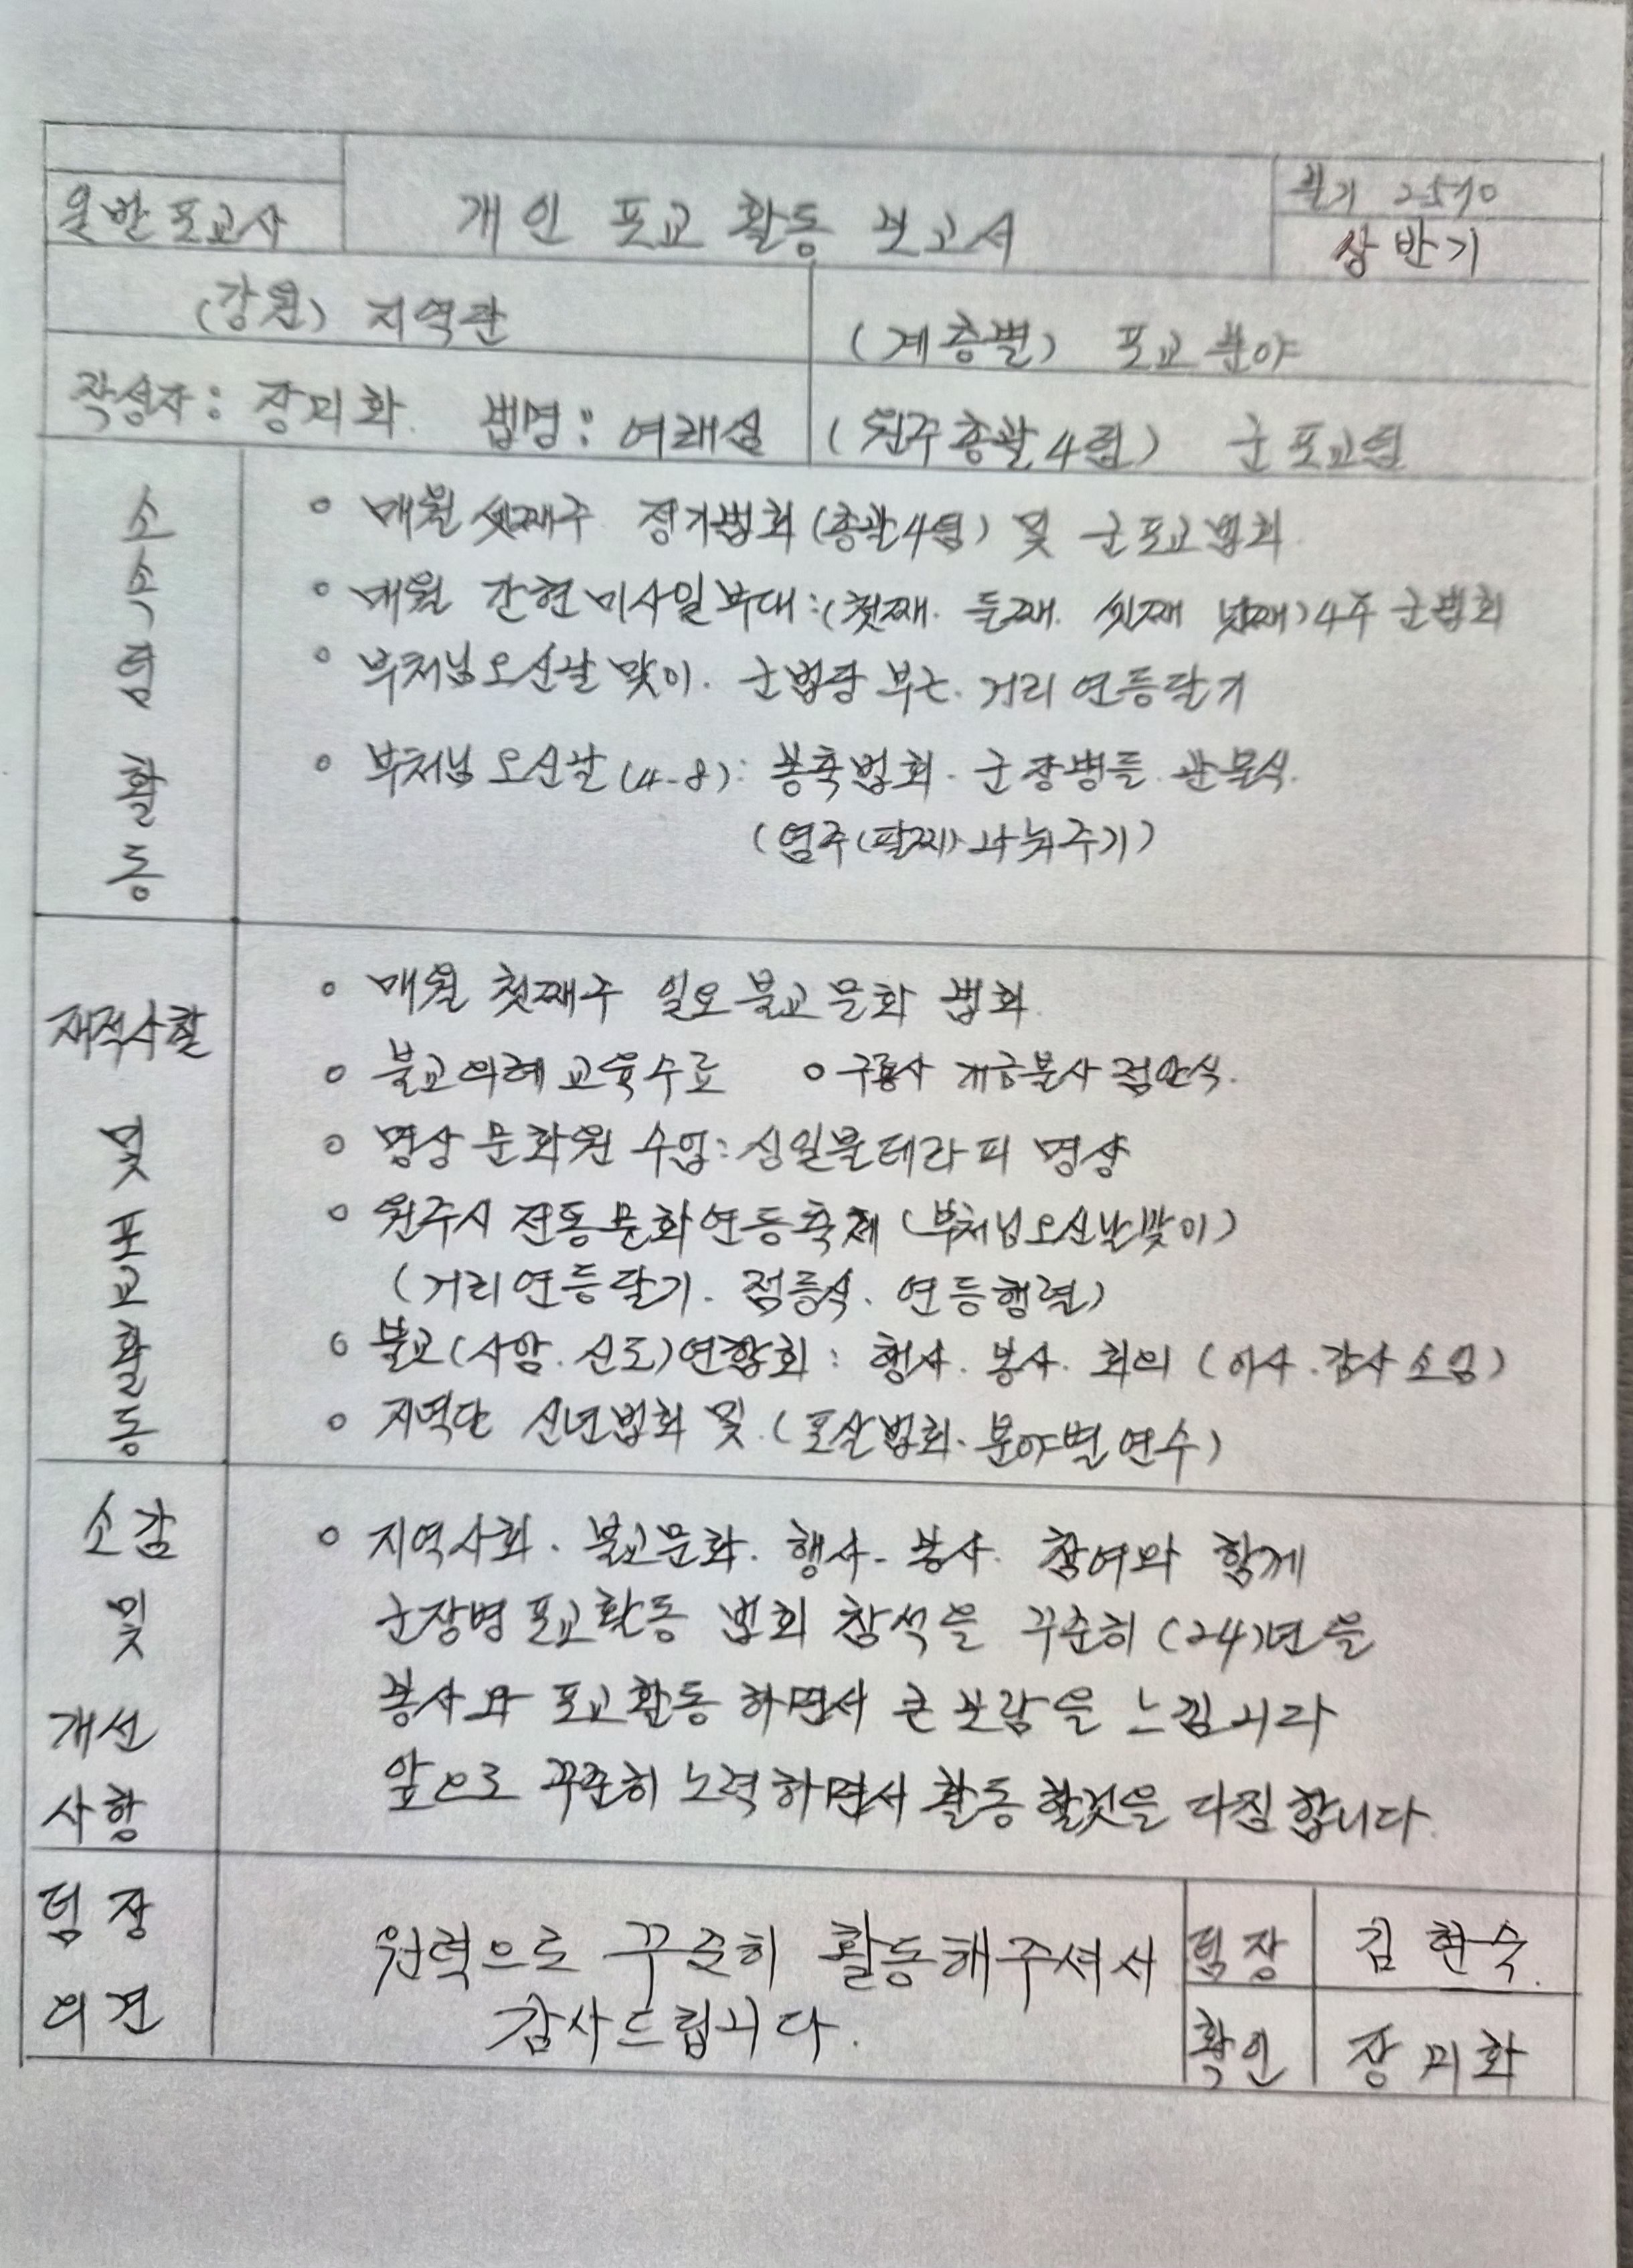 일반포교사
개인 포교 활동 보고서
불기 2570
상반기
(강원) 지역단
(계층별) 포교분야
작성자: 장미화 법명: 여래심
(원주총괄4팀) 군포교팀
소속팀 활동
○ 매월 셋째주 정기법회(총괄4팀) 및 군포교법회
○ 매월 간현 미사일부대:(첫째. 둘째. 셋째 넷째)4주 군법회
○ 부처님오신날 맞이. 군법당 부근. 거리 연등달기
○ 부처님 오신날(4-8): 봉축법회. 군장병들 관불식.
(염주(팔찌) 나눠주기)
재적사찰 및 포교활동
○ 매월 첫째주 일요불교문화 법회
○ 불교의례교육수료 ○구룡사 개금불사 점안식.
○ 명상문화원 수업: 싱잉볼테라피 명상
○ 원주시 전통문화연등축제 (부처님오신날맞이)
(거리연등달기. 점등식. 연등행렬)
○ 불교(사암.신도)연합회: 행사. 봉사. 회의 (이사.감사소임)
○ 지역단 신년법회 및 (포살법회. 분야별연수)
소감 및 개선사항
○ 지역사회. 불교문화. 행사. 봉사. 참여와 함께
군장병포교활동 법회 참석을 꾸준히 (24)년을
봉사와 포교활동 하면서 큰 보람을 느낍니다
앞으로 꾸준히 노력하면서 활동 할것을 다짐합니다.
팀장 의견
원력으로 꾸준히 활동해주셔서
감사드립니다.
팀장 김현숙.
확인 장미화